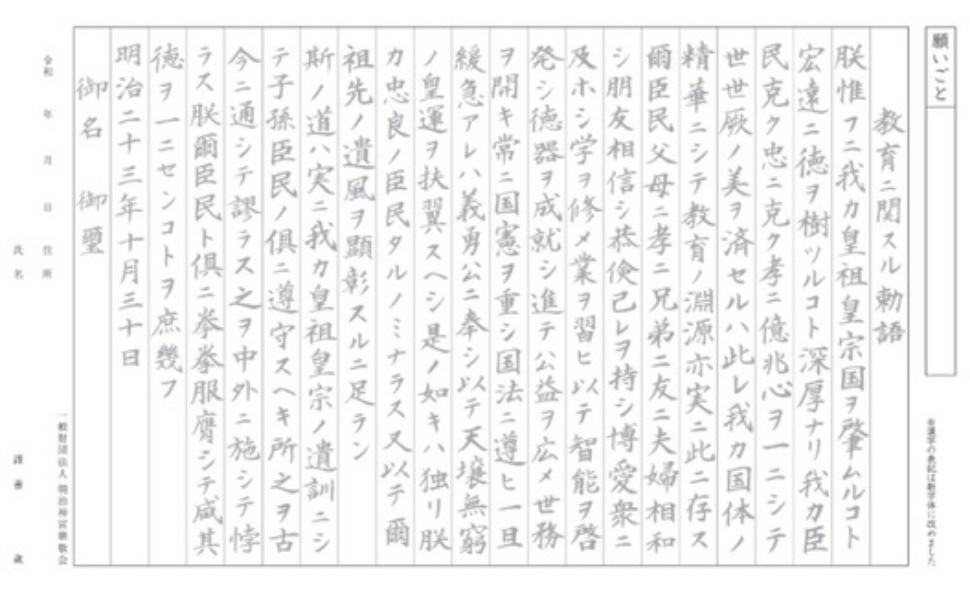 願いごと
※漢字の表記は新字体に改めました
教育ニ関スル勅語
朕惟フニ我カ皇祖皇宗国ヲ肇ムルコト
宏遠ニ徳ヲ樹ツルコト深厚ナリ我カ臣
民克ク忠ニ克ク孝ニ億兆心ヲ一ニシテ
世世厥ノ美ヲ済セルハ此レ我カ国体ノ
精華ニシテ教育ノ淵源亦実ニ此ニ存ス
爾臣民父母ニ孝ニ兄弟ニ友ニ夫婦相和
シ朋友相信シ恭倹己レヲ持シ博愛衆ニ
及ホシ学ヲ修メ業ヲ習ヒ以テ智能ヲ啓
発シ徳器ヲ成就シ進テ公益ヲ広メ世務
ヲ開キ常ニ国憲ヲ重シ国法ニ遵ヒ一旦
緩急アレハ義勇公ニ奉シ以テ天壌無窮
ノ皇運ヲ扶翼スヘシ是ノ如キハ独リ朕
カ忠良ノ臣民タルノミナラス又以テ爾
祖先ノ遺風ヲ顕彰スルニ足ラン
斯ノ道ハ実ニ我カ皇祖皇宗ノ遺訓ニシ
テ子孫臣民ノ倶ニ遵守スヘキ所之ヲ古
今ニ通シテ謬ラス之ヲ中外ニ施シテ悖
ラス朕爾臣民ト倶ニ拳拳服膺シテ咸其
徳ヲ一ニセンコトヲ庶幾フ
明治二十三年十月三十日
御名 御璽
一般財団法人 明治神宮崇敬会
令和 年 月 日 住所
氏名 謹書 歳